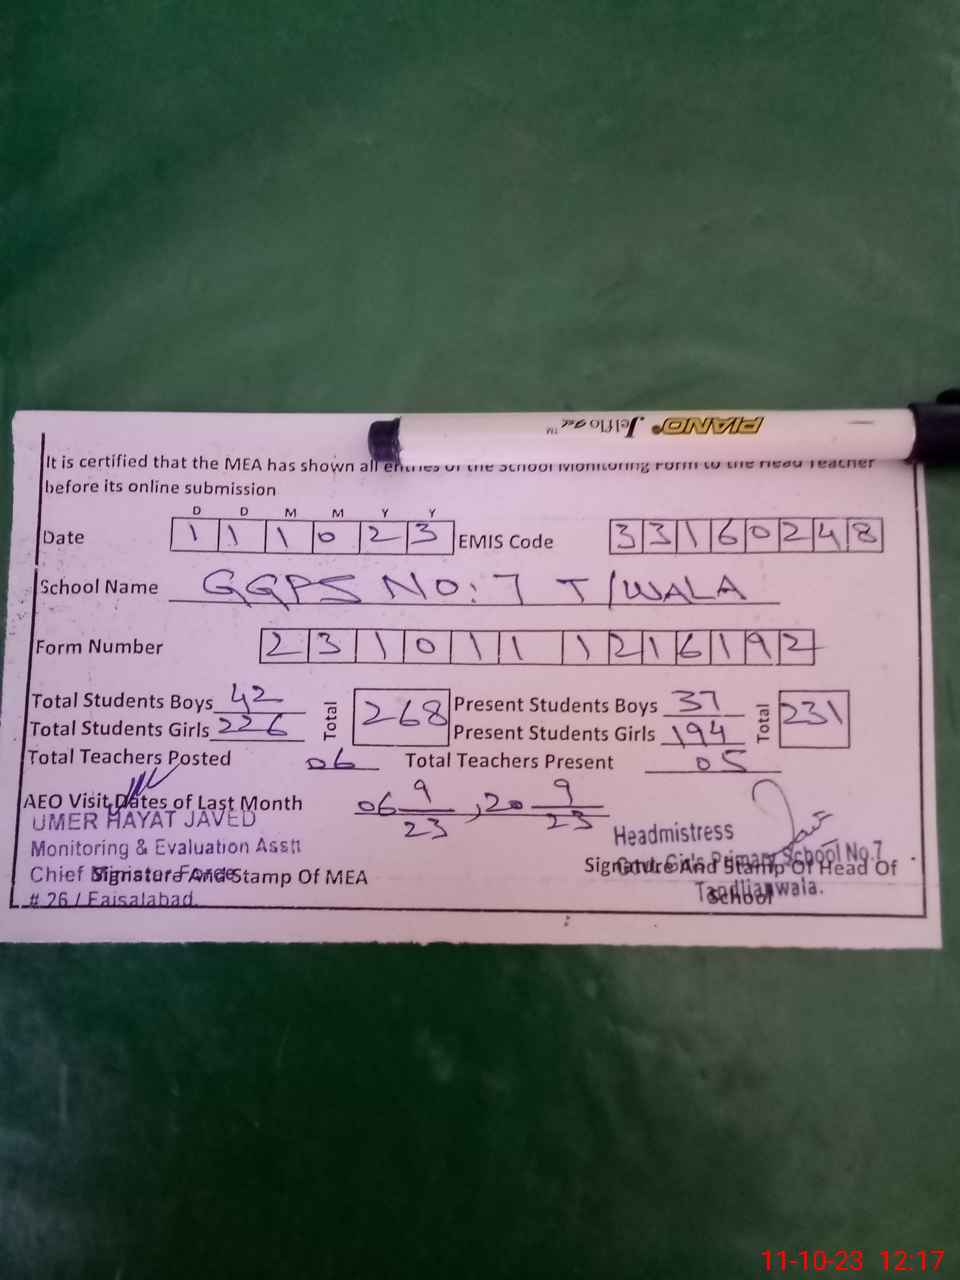 PIANO® Jelflo gel™
It is certified that the MEA has shown all entries of the School Monitoring Form to the Head Teacher
before its online submission
D D M M Y Y
Date 1 1 1 0 2 3 EMIS Code 3 3 1 6 0 2 4 8
School Name GGPS No: 7 T/WALA
Form Number 2 3 1 0 1 1 1 2 1 6 1 9 2
Total Students Boys 42 Total 268 Present Students Boys 37 Total 231
Total Students Girls 226 Present Students Girls 194
Total Teachers Posted 06 Total Teachers Present 05
AEO Visit Dates of Last Month 06 9/23, 20 9/23
UMER HAYAT JAVED
Monitoring & Evaluation Asstt
Chief Minister Force
# 26 / Faisalabad.
Signature And Stamp Of MEA
Headmistress
Govt. Girls Primary School No.7
Tandlianwala.
Signature And Stamp Of Head Of
School
11-10-23 12:17